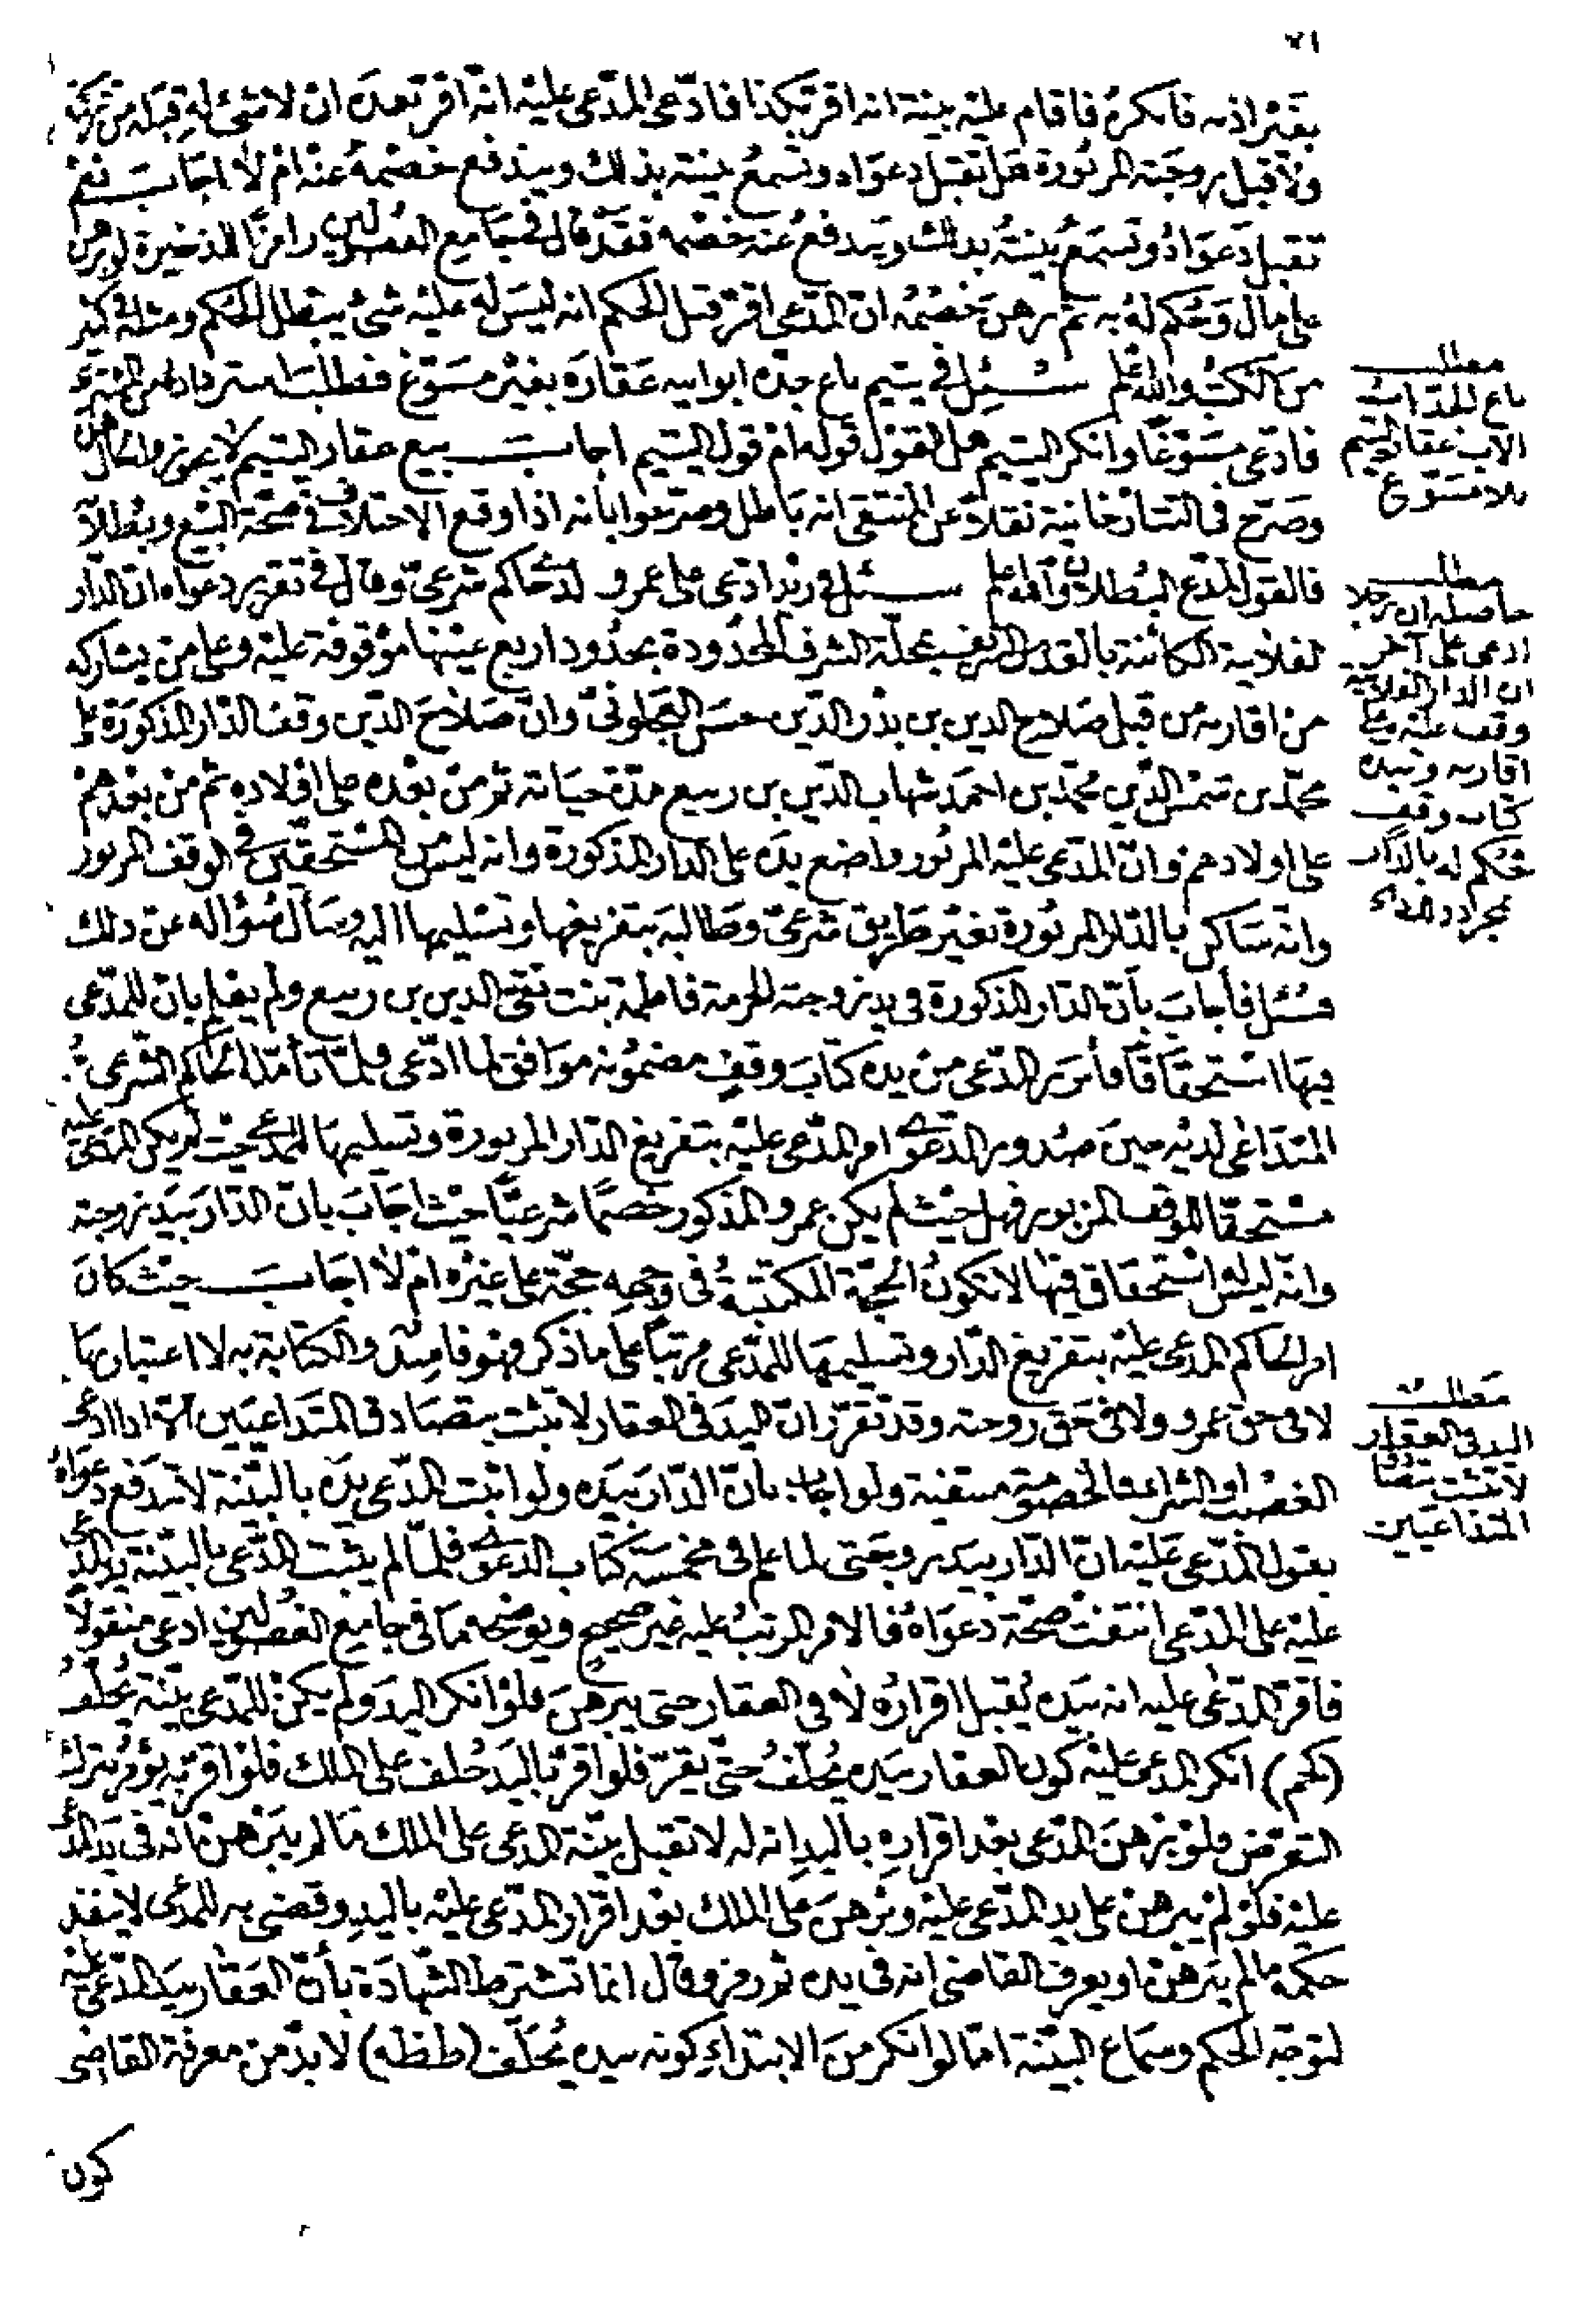 بغير اذنه فانكر فاقام عليه بينة انه اقر بكذا فادعى المدعى عليه انه اقر بعده ان لا شئ له قبله من تركة
ولا قبل زوجته المزبورة هل تقبل دعواه وتسمع بينته بذلك ويندفع خصمه عنه ام لا اجاب نعم
تقبل دعواه وتسمع بينته بذلك ويندفع عنه خصمه فقد قال في جامع الفصولين رامزا للذخيرة لو برهن
على مال وحكم له به ثم برهن خصمه ان المدعى اقر قبل الحكم انه ليس له عليه شئ يبطل الحكم ومثله في كثير
من الكتب والله اعلم سئل في يتيم باع جده ابو ابيه عقاره بغير مسوغ فطلب استرداده من المشترى
فادعى مسوغا وانكر اليتيم هل القول قوله ام قول اليتيم اجاب بيع عقار اليتيم لا يجوز والحال هذه
وصرح في التتارخانية نقلا عن المنتقى انه باطل وصرحوا بانه اذا وقع الاختلاف في صحة البيع وبطلانه
فالقول لمدعى البطلان والله اعلم سئل في زيد ادعى على عمرو لدى حاكم شرعي وقال في تقرير دعواه ان الدار
الفلانية الكائنة بالقدس الشريف بمحلة الشرف المحدودة بحدود اربع عينها موقوفة عليه وعلى من يشاركه
من اقاربه من قبل صلاح الدين بن بدر الدين حسن وان صلاح الدين وقف الدار المذكورة على
محمد بن شمس الدين محمد بن احمد شهاب الدين بن ربيع مدة حياته ثم من بعده على اولاده ثم من بعدهم
على اولادهم وان المدعى عليه المزبور واضع يده على الدار المذكورة وانه ليس من المستحقين في الوقف المزبور
وانه ساكن بالدار المزبورة بغير طريق شرعي وطالبه بتفريغها وتسليمها اليه وسأل سؤاله عن ذلك
فسئل فاجاب بأن الدار المذكورة في يد زوجته الحرمة فاطمة بنت تقى الدين بن ربيع ولم يعلم بان للمدعى
فيها استحقاقا فأبرز المدعى من يده كتاب وقف مضمونه موافق لما ادعى فلما تأمله الحاكم الشرعي
المتداعى لديه حين صدور الدعوى امر المدعى عليه بتفريغ الدار المزبورة وتسليمها للمدعى حيث لم يكن المدعى عليه
مستحقا للوقف المزبور فهل حيث لم يكن عمرو المذكور خصما شرعيا حيث اجاب بان الدار بيد زوجته
وانه ليس له استحقاق فيها لا تكون الحجة المكتتبة في وجهه حجة على غيره ام لا اجاب حيث كان
امر الحاكم المدعى عليه بتفريغ الدار وتسليمها للمدعى مرتبا على ما ذكر فهو فاسد والكتابة به لا اعتبار بها
لا في حق عمرو ولا في حق زوجته وقد تقرر ان اليد في العقار لا تثبت بتصادق المتداعيين الا اذا ادعى
الغصب او الشراء فالخصومة منتفية ولو اجاب بان الدار بيده ولو اثبت المدعى يده بالبينة لا تندفع دعواه
بقول المدعى عليه ان الدار بيد زوجتى لما علم في مخمسة كتاب الدعوى فلما لم يثبت المدعى بالبينة يد المدعى
عليه على المدعى انتفت صحة دعواه فالامر المرتب عليه غير صحيح ويوضحه ما في جامع الفصولين ادعى منقولا
فاقر المدعى عليه انه بيده يقبل اقراره لا في العقار حتى يبرهن فلو انكر اليد ولم يكن للمدعى بينة يحلف
(كم) انكر المدعى عليه كون العقار بيده يحلف حتى يقر فلو اقر باليد حلف على الملك فلو اقر به يؤمر بترك
التعرض فلو برهن المدعى بعد اقراره باليد انه له لا تقبل بينة المدعى على الملك ما لم يبرهن انه في يد المدعى
عليه فلو لم يبرهن على يد المدعى عليه وبرهن على الملك بعد اقرار المدعى عليه باليد وقضى به للمدعى لا ينفذ
حكمه ما لم يبرهن او يعرف القاضى انه في يده ثم رمز وقال انما تشترط الشهادة بأن العقار بيد المدعى عليه
لتوجه الحكم وسماع البينة اما لو انكر من الابتداء كونه بيده يحلف (ظظه) لا بد من معرفة القاضى
كون
مطلب
باع الجد اب
الاب عقار اليتيم
بلا مسوغ
مطلب
حاصله ان رجلا
ادعى على آخر
ان الدار الفلانية
وقف عليه وعلى
اقاربه وبيده
كتاب وقف
فحكم له بالدار
بمجرد ذلك
مطلب
اليد في العقار
لا تثبت بتصادق
المتداعيين